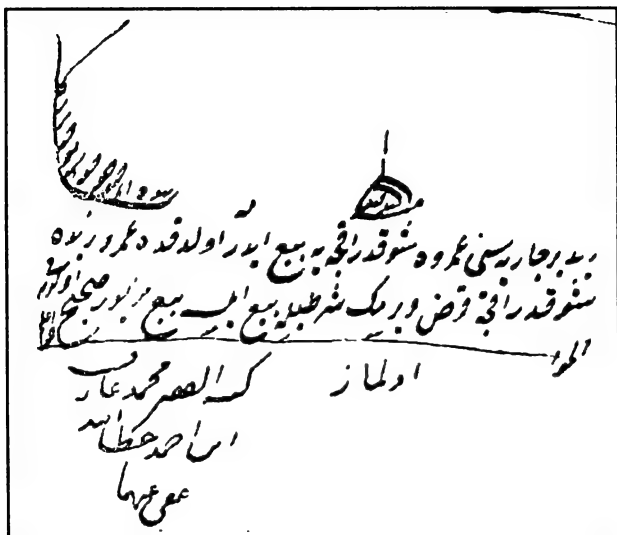 زيد بر جاريه سنى عمروه شو قدر اقچه يه بيع ايدر اولدقده عمرو زيده
شو قدر اقچه قرض ويرمك شرطيله بيع ايلسه بيع مزبور صحيح اولورمى
الجواب
اولماز كتبه الفقير محمد عارف
ابن احمد عطاالله
عفى عنهما